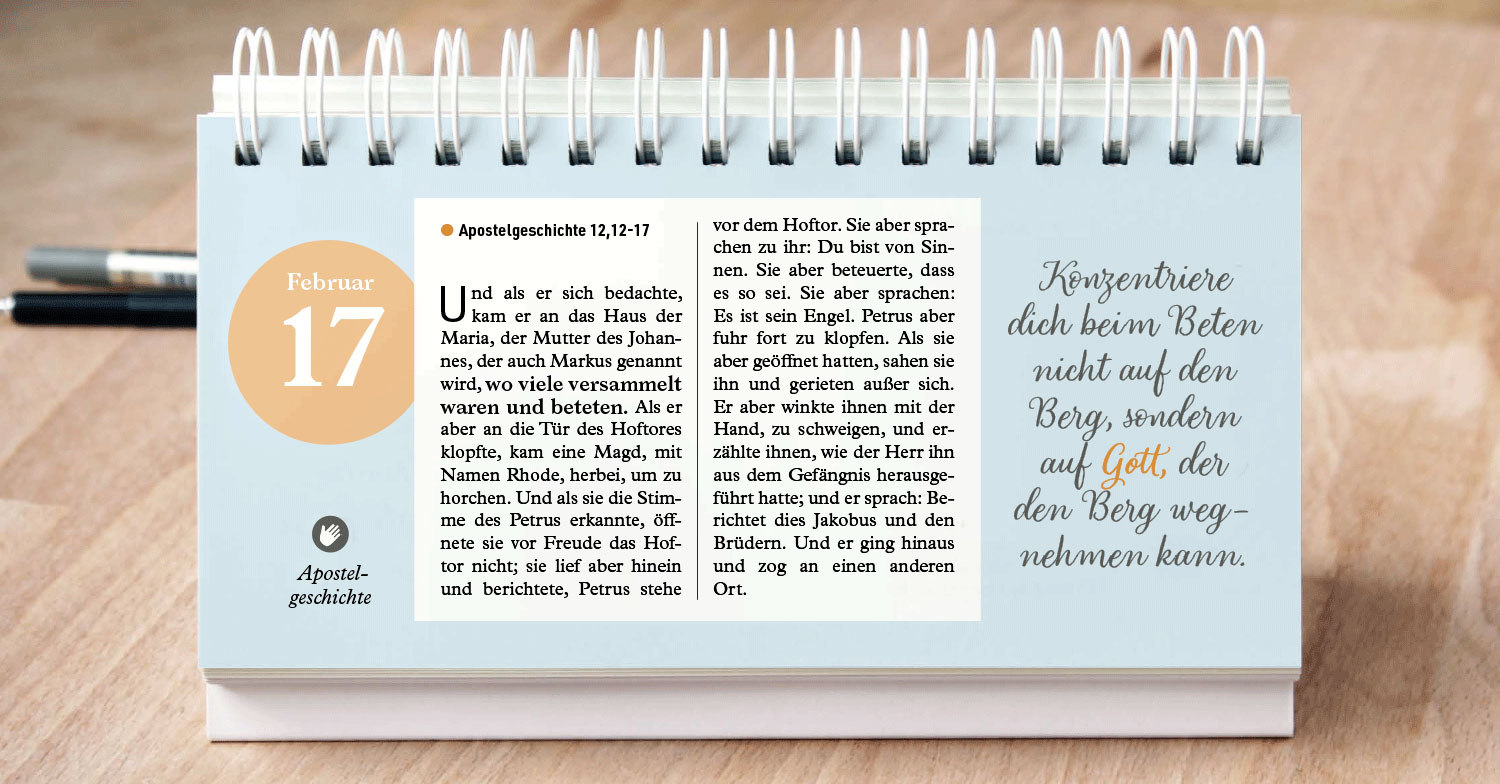 Februar
17
Apostel-
geschichte
Apostelgeschichte 12,12-17
Und als er sich bedachte,
kam er an das Haus der
Maria, der Mutter des Johan-
nes, der auch Markus genannt
wird, wo viele versammelt
waren und beteten. Als er
aber an die Tür des Hoftores
klopfte, kam eine Magd, mit
Namen Rhode, herbei, um zu
horchen. Und als sie die Stim-
me des Petrus erkannte, öff-
nete sie vor Freude das Hof-
tor nicht; sie lief aber hinein
und berichtete, Petrus stehe
vor dem Hoftor. Sie aber spra-
chen zu ihr: Du bist von Sin-
nen. Sie aber beteuerte, dass
es so sei. Sie aber sprachen:
Es ist sein Engel. Petrus aber
fuhr fort zu klopfen. Als sie
aber geöffnet hatten, sahen sie
ihn und gerieten außer sich.
Er aber winkte ihnen mit der
Hand, zu schweigen, und er-
zählte ihnen, wie der Herr ihn
aus dem Gefängnis herausge-
führt hatte; und er sprach: Be-
richtet dies Jakobus und den
Brüdern. Und er ging hinaus
und zog an einen anderen
Ort.
Konzentriere
dich beim Beten
nicht auf den
Berg, sondern
auf Gott, der
den Berg weg-
nehmen kann.